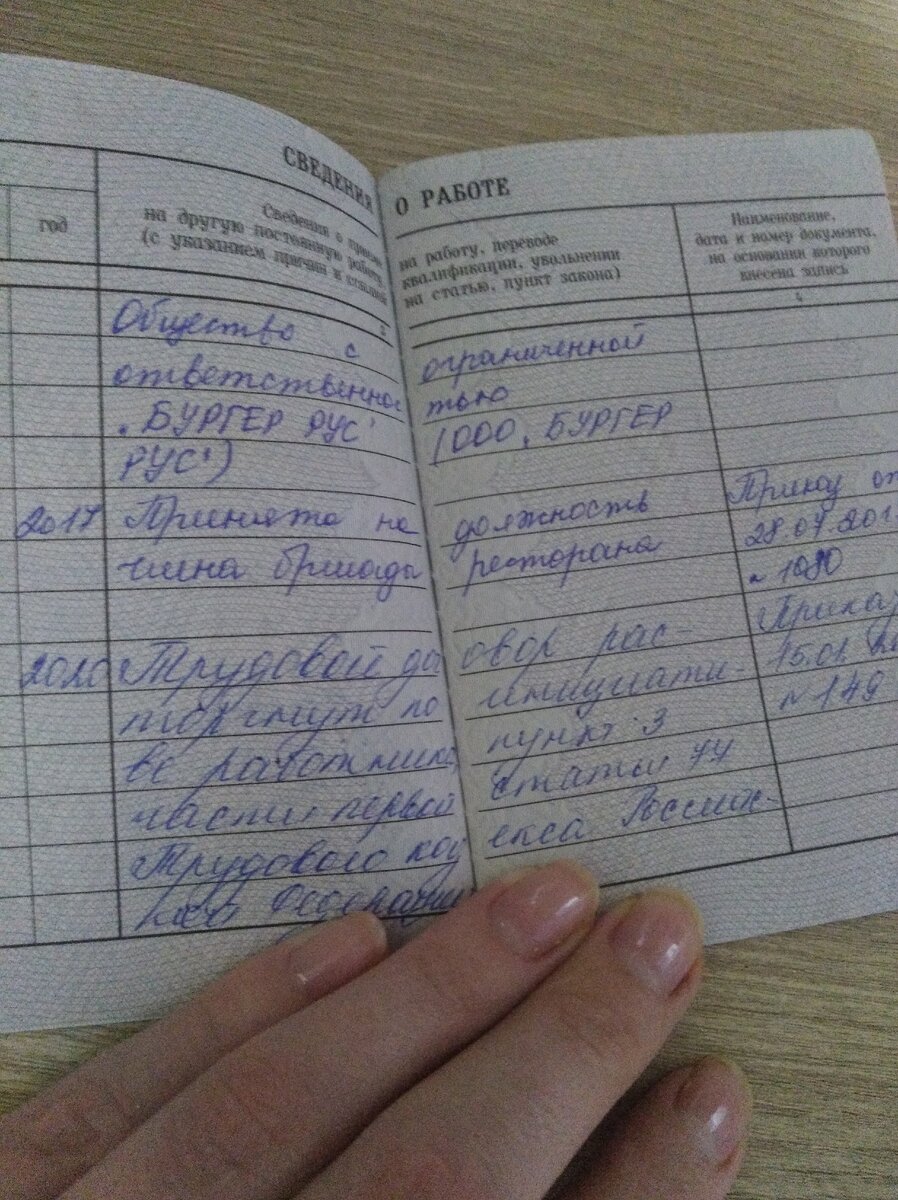 СВЕДЕНИЯ О РАБОТЕ
год
Сведения о приеме на работу, переводе
на другую постоянную работу, квалификации, увольнении
(с указанием причин и ссылкой на статью, пункт закона)
Наименование,
дата и номер документа,
на основании которого
внесена запись
3
4
Общество с ограниченной
ответственностью
„БУРГЕР РУС" (ООО „БУРГЕР
РУС")
2017 Принята на должность
члена бригады ресторана
Приказ от
28.07.201
№ 1080
2020 Трудовой договор рас-
торгнут по инициати-
ве работника, пункт 3
части первой статьи 77
Трудового кодекса Российс-
кой Федерации
Приказ
15.01.
№ 149